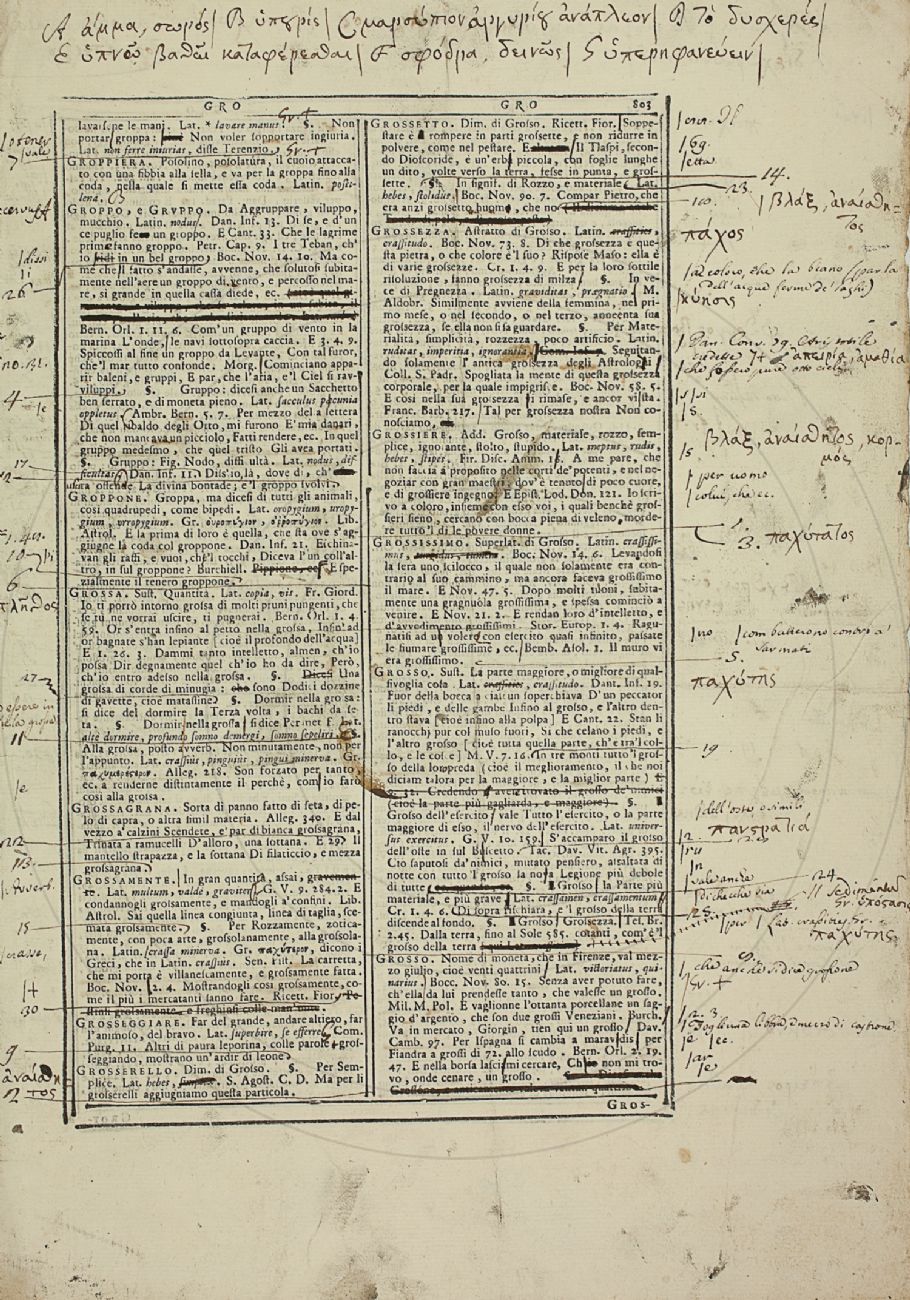 A ἅμμα, σωρός| B ὑπουρίς| C μαρσύπιον ἀργυρίου ἀνάπλεον| D Τὸ δυσχερές|
E ὕπνῳ βαθεῖ καταφέρεσθαι| F σφόδρα, δεινῶς| G ὑπερηφανεύειν|
GRO
GRO 803
lavarsene le mani. Lat. * lavare manus. §. Non
portar groppa: Non voler sopportare ingiuria.
Lat. non ferre iniurias, disse Terenzio.
GROPPIERA. Posolino, posolatura, il cuoio attacca-
to con una fibbia alla sella, e va per la groppa fino alla
coda, nella quale si mette essa coda. Latin. posti-
lena.
GROPPO, e GRUPPO. Da Aggruppare, viluppo,
mucchio. Latin. nodus. Dan. Inf. 13. Di se, e d'un
ce puglio fe un groppo. E Cant. 33. Che le lagrime
prime fanno groppo. Petr. Cap. 9. I tre Teban, ch'
io dissi in un bel groppo. Boc. Nov. 14. 10. Ma co-
me che si fatto s'andasse, avvenne, che solutosi subita-
mente nell'aere un groppo di vento, e percosso nel ma-
re, sì grande in quella cassa diede, ec.
Bern. Orl. 1. 11. 6. Com'un gruppo di vento in la
marina L'onde, le navi sottosopra caccia. E 3. 4. 9.
Spiccossi al fine un groppo da Levante, Con tal furor,
che'l mar tutto confonde. Morg. Cominciano appa-
rir baleni, e gruppi, E par, che l'aria, e'l Ciel si rav-
viluppi. §. Gruppo: dicesi anche un Sacchetto
ben serrato, e di moneta pieno. Lat. sacculus pecunia
oppletus. Ambr. Bern. 5. 7. Per mezzo della lettera
Di quel Nbaldo degli Otto, mi furono E'mia danari,
che non mancava un picciolo, Fatti rendere, ec. In quel
gruppo medesimo, che quel tristo Gli avea portati.
§. Gruppo: Fig. Nodo, difficultà. Lat. nodus, dif-
ficultas. Dan. Inf. 11. Diss'io, là, dove di, ch'
usura offende La divina bontade; e'l groppo svolvi.
GROPPONE. Groppa, ma dicesi di tutti gli animali,
così quadrupedi, come bipedi. Lat. oropygium, uropy-
gium, urropygium. Gr. ὀροπύγιον, ὀῤῥοπύγιον. Lib.
Astrol. E la prima di loro è quella, che sta ove s'ag-
giugne la coda col groppone. Dan. Inf. 21. Eichina-
van gli raffi, e vuoi, che'l tocchi, Diceva l'un coll'al-
tro, in sul groppone? Burchiell. Pippione, ec. E spe-
zialmente il tenero groppone.
GROSSA. Sust. Quantità. Lat. copia, vis. Fr. Giord.
Io ti porrò intorno grossa di molti pruni pungenti, che
se tu ne vorrai uscire, ti pugnerai. Bern. Orl. 1. 4.
59. Or s'entra insino al petto nella grossa, Insin'ad
or bagnate s'han lepiante [cioè il profondo dell'acqua]
E 1. 26. 3. Dammi tanto intelletto, almen, ch'io
possa Dir degnamente quel ch'io ho da dire, Però,
ch'io entro adesso nella grossa. §. Dicesi Una
grossa di corde di minugia: che sono Dodici dozzine
di gavette, cioè matassine. §. Dormir nella grossa:
si dice del dormire la Terza volta, i bachi da se-
ta. §. Dormir nella grossa si dice Per met f. Lat.
altè dormire, profundo somno demergi, somno sepeliri. §.
Alla grossa, posto avverb. Non minutamente, non per
l'appunto. Lat. crassius, pinguius, pingui minerva. Gr.
παχυμερέστερον. Alleg. 218. Son forzato per tanto,
ec. a renderne distintamente il perchè, com'io farò
così alla grossa.
GROSSAGRANA. Sorta di panno fatto di seta, di pe-
lo di capra, o altra simil materia. Alleg. 340. E dal
vezzo a'calzini Scendete, e'par di bianca grossagrana,
Trinata a ramucelli D'alloro, una sottana. E 29. Il
mantello strapazza, e la sottana Di filaticcio, e mezza
grossagrana.
GROSSAMENTE. In gran quantità, assai, gravemen-
te. Lat. multum, valdè, graviter. G. V. 9. 284. 2. E
condannogli grossamente, e mandogli a'confini. Lib.
Astrol. Sai quella linea congiunta, linea di taglia, sce-
mata grossamente. §. Per Rozzamente, zotica-
mente, con poca arte, grossolanamente, alla grossola-
na. Latin. crassa minerva. Gr. παχύτερον, dicono i
Greci, che in Latin. crassius. Sen. Pist. La carretta,
che mi porta è villanescamente, e grossamente fatta.
Boc. Nov. 2. 4. Mostrandogli così grossamente, co-
me il più i mercatanti sanno fare. Ricett. Fior. Pe-
stinsi grossamente, e freghinsi colle man'une.
GROSSEGGIARE. Far del grande, andare altiero, far
l'animoso, del bravo. Lat. superbire, se efferre. Com.
Purg. 11. Altri di paura leporina, colle parole gros-
seggiando, mostrano un'ardir di leone.
GROSSERELLO. Dim. di Grosso. §. Per Sem-
plice. Lat. hebes, simplex. S. Agost. C. D. Ma per li
grosserelli aggiugniamo questa particola.
GROSSETTO. Dim. di Grosso. Ricett. Fior. Soppe-
stare è rompere in parti grossette, e non ridurre in
polvere, come nel pestare. E Il Tlaspi, secon-
do Dioscoride, è un'erba piccola, con foglie lunghe
un dito, volte verso la terra, fesse in punta, e gros-
sette. §. In signif. di Rozzo, e materiale. Lat.
hebes, stolidus. Boc. Nov. 90. 7. Compar Pietro, che
era anzi grossetto huomo, che no
GROSSEZZA. Astratto di Grosso. Latin. crassities,
crassitudo. Boc. Nov. 73. 8. Di che grossezza e que-
sta pietra, o che colore è'l suo? Rispose Maso: ella è
di varie grossezze. Cr. 1. 4. 9. E per la loro sottile
risoluzione, fanno grossezza di milza. §. In ve-
ce di Pregnezza. Latin. graviditas, prægnatio. M.
Aldobr. Similmente avviene della femmina, nel pri-
mo mese, o nel secondo, o nel terzo, anocenta sua
grossezza, se ella non si sa guardare. §. Per Mate-
rialità, simplicità, rozzezza, poco artificio. Latin.
ruditas, imperitia, ignorantia. Com. Inf. Seguitan-
do solamente l'antica grossezza degli Astrologhi.
Coll. S. Padr. Spogliata la mente di questa grossezza
corporale, per la quale impigrisce. Boc. Nov. 58. 5.
E così nella sua grossezza si rimase, e ancor vi sta.
Franc. Barb. 217. Tal per grossezza nostra Non co-
nosciamo,
GROSSIERE. Add. Grosso, materiale, rozzo, sem-
plice, ignorante, stolto, stupido. Lat. ineptus, rudis,
hebes, stipes. Fir. Disc. Anim. 18. A me pare, che
non faccia a proposito nelle corti de'potenti, e nel ne-
goziar con gran maestri, dov'è tenuto di poco cuore,
e di grossiere ingegno. E Epist. Lod. Don. 121. Io scri-
vo a coloro, insieme con esso voi, i quali benchè gros-
sieri sieno, cercano con bocca piena di veleno, morde-
re tutto'l dì le povere donne.
GROSSISSIMO. Superlat. di Grosso. Latin. crassissi-
mus, Boc. Nov. 14. 6. Levandosi
la sera uno scilocco, il quale non solamente era con-
trario al suo cammino, ma ancora faceva grossissimo
il mare. E Nov. 47. 5. Dopo molti tuoni, subita-
mente una gragnuola grossissima, e spessa cominciò a
venire. E Nov. 21. 2. E rendan loro d'intelletto, e
d'avvedimento grossissimi. Stor. Europ. 1. 4. Ragu-
natisi ad un volere con esercito quasi infinito, passate
le fiumare grossissime, ec. Bemb. Asol. 1. Il muro vi
era grossissimo.
GROSSO. Sust. La parte maggiore, o migliore di qual-
sivoglia cosa. Lat. crassities, crassitudo. Dant. Inf. 19.
Fuor della bocca a ciascun soperchiava D'un peccator
li piedi, e delle gambe Infino al grosso, e l'altro den-
tro stava [cioè infino alla polpa] E Cant. 22. Stan li
ranocchj pur col muso fuori, Sì che celano i piedi, e
l'altro grosso [cioè tutta quella parte, ch'è tra'l col-
lo, e le cosce] M. V. 7. 16. In tre monti tutto'l gros-
so della lompreda (cioè il meglioramento, il che noi
diciam talora per la maggiore, e la miglior parte) E
9. 32. Credendo aver trovato il grosso de'nimici
(cioè la parte più gagliarda, e maggiore). §. Il
Grosso dell'esercito vale Tutto l'esercito, o la parte
maggiore di esso, il nervo dell'esercito. Lat. univer-
sus exercitus. G. V. 10. 159. S'accamparo il grosso
dell'oste in sul Bulicetto. Tac. Dav. Vit. Agr. 395.
Ciò saputosi da'nimici, mutato pensiero, assaltata di
notte con tutto'l grosso la nona Legione più debole
di tutte §. Grosso la Parte più
materiale, e più grave. Lat. crassamen, crassamentum.
Cr. 1. 4. 6. Di sopra rischiara, e'l grosso della terra
discende al fondo. §. Grosso Grossezza. Tes. Br.
2.45. Dalla terra, fino al Sole 585. cotanti, com'è'l
grosso della terra
GROSSO. Nome di moneta, che in Firenze, val mez-
zo giulio, cioè venti quattrini. Lat. victoriatus, qui-
narius. Bocc. Nov. 80. 15. Senza aver potuto fare,
ch'ella da lui prendesse tanto, che valesse un grosso.
Mil. M. Pol. E vaglionne l'ottanta porcellane un sag-
gio d'argento, che son due grossi Veneziani. Burch.
Va in mercato, Giorgin, tien qui un grosso. Dav.
Camb. 97. Per Ispagna si cambia a maravedis per
Fiandra a grossi di 72. allo scudo. Bern. Orl. 2. 19.
47. E nella borsa lascimi cercare, Chsio non mi tro-
vo, onde cenare, un grosso.
GROS-
14.
23.
100.
βλάξ, ἀναίσθη-
τος
πάχος
κύησις
ἀπειρία, ἀμαθία
βλάξ, ἀναίσθητος, κορ-
μός
per uomo
colui, che ec.
3. παχύτατος
combatterono contro a'
Sarmati
5.
παχύτης
19
dell'osto o simile
24
παχύτης
che anche si dice grossone
26
4
17
10
6
πλῆθος
27
11
15
30
9
ἀναίσθη
τος